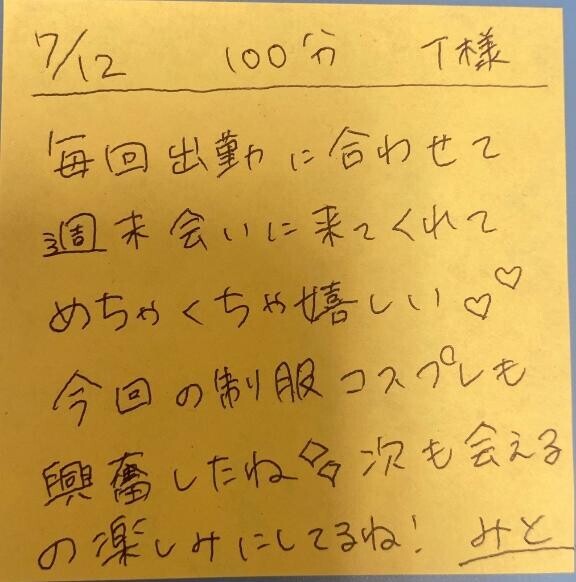 7/12 100分 T様
毎回出勤に合わせて
週末会いに来てくれて
めちゃくちゃ嬉しい♡♡
今回の制服コスプレも
興奮したね 次も会える
の楽しみにしてるね! みと